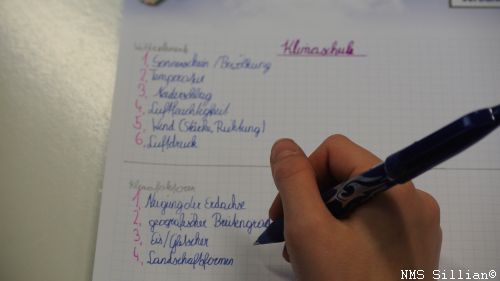 Klimaschule
Wetterelemente
1. Sonnenschein / Bewölkung
2. Temperatur
3. Niederschlag
4. Luftfeuchtigkeit
5. Wind (Stärke, Richtung)
6. Luftdruck
Klimafaktoren
1. Neigung der Erdachse
2. geografischer Breitengrad
3. Eis/Gletscher
4. Landschaftsformen
NMS Sillian©